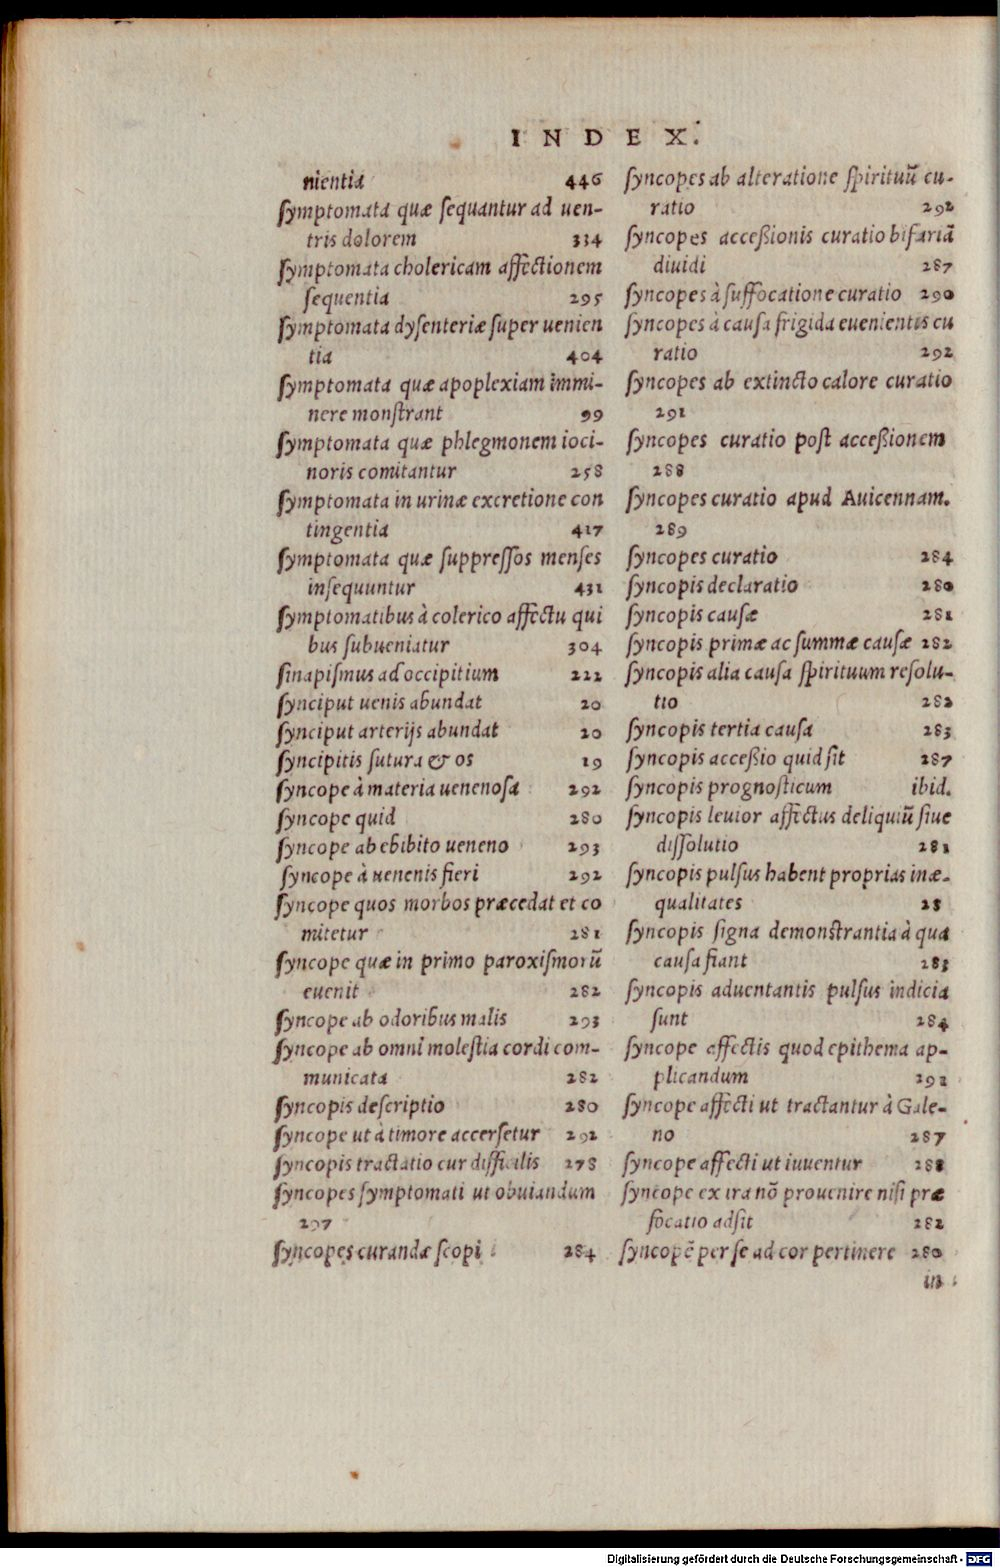 INDEX.
nientia 446
ſymptomata quæ ſequantur ad uen-
tris dolorem 334
ſymptomata cholericam affectionem
ſequentia 295
ſymptomata dyſenteriæ ſuper uenien
tia 404
ſymptomata quæ apoplexiam immi-
nere monſtrant 99
ſymptomata quæ phlegmonem ioci-
noris comitantur 258
ſymptomata in urinæ excretione con
tingentia 417
ſymptomata quæ suppreſſos menſes
inſequuntur 431
ſymptomatibus à colerico affectu qui
bus ſubueniatur 304
ſinapiſmus ad occipitium 222
ſynciput uenis abundat 20
ſynciput arterijs abundat 20
ſyncipitis ſutura & os 19
ſyncope à materia uenenoſa 292
ſyncope quid 280
ſyncope ab ebibito ueneno 293
ſyncope à uenenis fieri 292
ſyncope quos morbos præcedat et co
mitetur 281
ſyncope quæ in primo paroxiſmorũ
euenit 282
ſyncope ab odoribus malis 293
ſyncope ab omni moleſtia cordi com-
municata 282
ſyncopis deſcriptio 280
ſyncope ut à timore accerſetur 292
ſyncopis tractatio cur difficilis 278
ſyncopes ſymptomati ut obuiandum
297
ſyncopes curandæ ſcopi 284
ſyncopes ab alteratione ſpirituũ cu-
ratio 292
ſyncopes acceßionis curatio bifariã
diuidi 287
ſyncopes à ſuffocatione curatio 290
ſyncopes à cauſa frigida euenientis cu
ratio 292
ſyncopes ab extincto calore curatio
291
ſyncopes curatio poſt acceßionem
288
ſyncopes curatio apud Auicennam.
289
ſyncopes curatio 284
ſyncopis declaratio 280
ſyncopis cauſæ 281
ſyncopis primæ ac ſummæ cauſæ 282
ſyncopis alia cauſa ſpirituum reſolu-
tio 282
ſyncopis tertia cauſa 283
ſyncopis acceßio quid ſit 287
ſyncopis prognoſticum ibid.
ſyncopis leuior affectus deliquiũ ſiue
diſſolutio 281
ſyncopis pulſus habent proprias inæ-
qualitates 28
ſyncopis ſigna demonſtrantia à qua
cauſa fiant 283
ſyncopis aduentantis pulſus indicia
ſunt 284
ſyncope affectis quod epithema ap-
plicandum 292
ſyncope affecti ut tractantur à Gale-
no 287
ſyncope affecti ut iuuentur 288
ſyncope ex ira nõ prouenire niſi præ
focatio adſit 282
ſyncopẽ per ſe ad cor pertinere 280
in
Digitalisierung gefördert durch die Deutsche Forschungsgemeinschaft - DFG